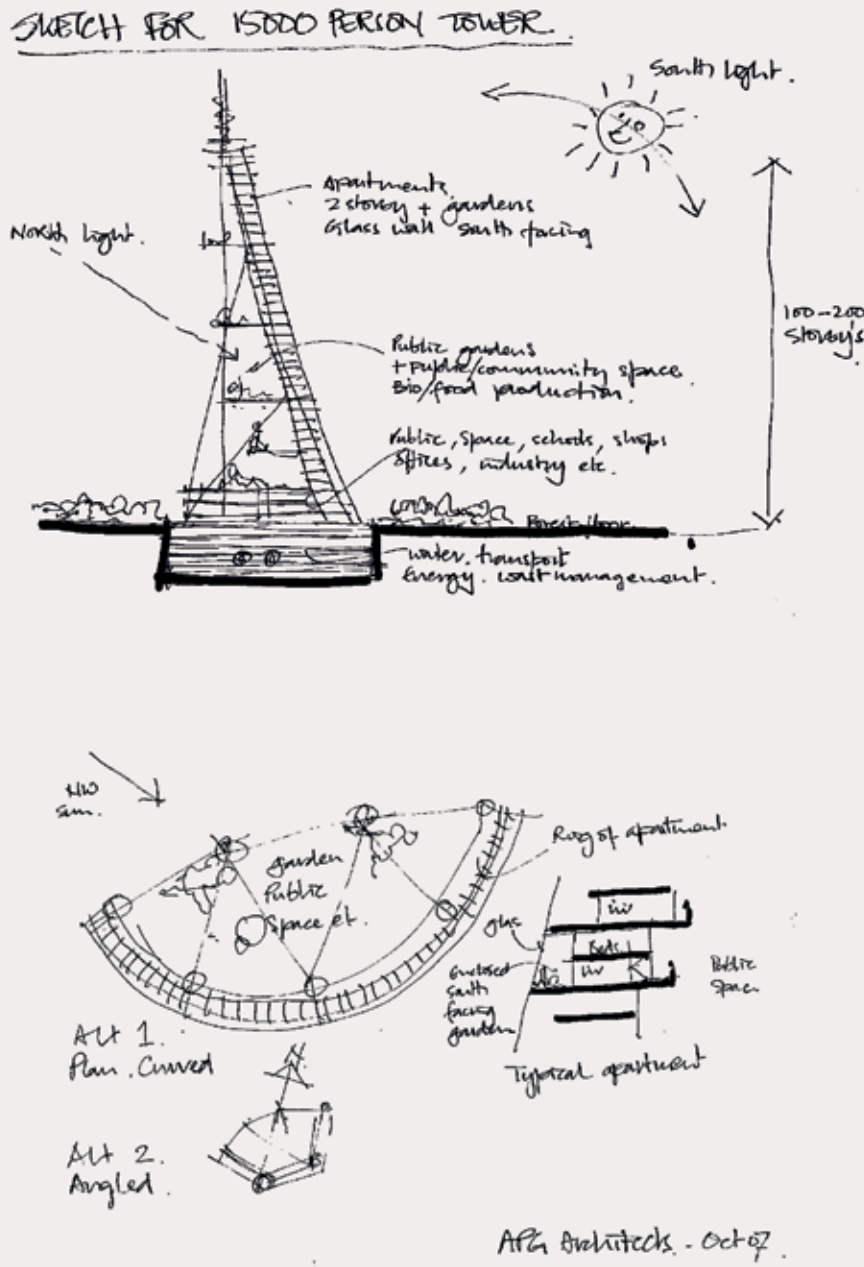 SKETCH FOR 15000 PERSON TOWER.
South light.
Apartments
2 storey + gardens
Glass wall south facing
North light.
100-200
Storey's
Public gardens
+ public/community space
Bio/food production.
Public, space, schools, shops
offices, industry etc.
Forest floor
water. transport
Energy. wast management.
NW
Sun.
Ring of apartment
garden
Public
Space et.
glas
Enclosed
south
facing
garden
Liv
Beds
Liv
Public
Space
Typical apartment
Alt 1.
Plan. Curved
Alt 2.
Angled.
Architects - Oct 07.